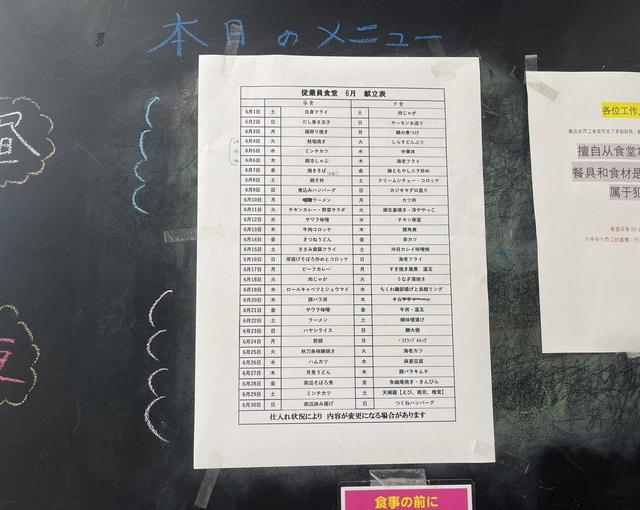 本日のメニュー
従業員食堂 6月 献立表
昼食 夕食
6月1日 土 白身フライ 土 肉じゃが
6月2日 日 だし巻き玉子 日 サーモンお造り
6月3日 月 鶏照り焼き 月 鯖の煮つけ
6月4日 火 鮭塩焼き 火 しらすどんぶり
6月5日 水 ミンチカツ 水 中華丼
6月6日 木 豚冷しゃぶ 木 海老フライ
6月7日 金 焼きそば 金 鶏ともやしニラ炒め
6月8日 土 親子丼 土 クリームシチュー・コロッケ
6月9日 日 煮込みハンバーグ 日 カジキマグロ造り
6月10日 月 ラーメン 月 カツ丼
6月11日 火 チキンカレー・野菜サラダ 火 豚生姜焼き・冷ややっこ
6月12日 水 サワラ味噌 水 チキン南蛮
6月13日 木 牛肉コロッケ 木 豚角煮
6月14日 金 きつねうどん 金 串カツ
6月15日 土 ささみ紫蘇フライ 土 沖目カレイ味噌焼
6月16日 日 厚揚げそぼろ炒めとコロッケ 日 海老フライ
6月17日 月 ビーフカレー 月 すき焼き風煮 温玉
6月18日 火 肉じゃが 火 うなぎ蒲焼き
6月19日 水 ロールキャベツとシュウマイ 水 ちくわ磯部揚げと烏賊リング
6月20日 木 豚バラ丼 木
6月21日 金 サワラ味噌 金 牛丼・温玉
6月22日 土 ラーメン 土 鯛味噌漬け
6月23日 日 ハヤシライス 日 鰤大根
6月24日 月 酢豚 月
6月25日 火 秋刀魚味醂焼き 火 海老カツ
6月26日 水 ハムカツ 水 麻婆豆腐
6月27日 木 月見うどん 木 豚バラキムチ
6月28日 金 南瓜そぼろ煮 金 魚幽庵焼き・きんぴら
6月29日 土 ミンチカツ 土 天婦羅【えび、南京、椎茸】
6月30日 日 南瓜挟み揚げ 日 つくねハンバーグ
仕入れ状況により 内容が変更になる場合があります
各位工作
擅自从食堂
餐具和食材是
属于犯
食事の前に